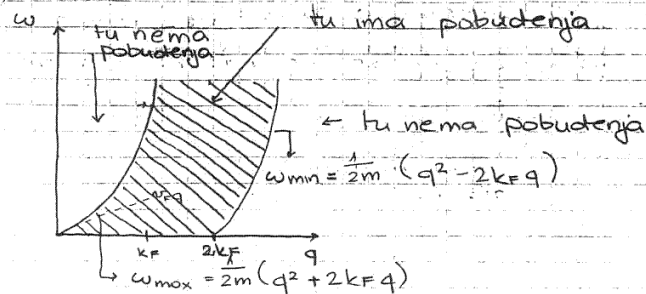 ω
tu nema
pobuđenja
tu ima pobuđenja
← tu nema pobuđenja
ω min = 1/2m · (q² - 2kF q)
vF q
kF
2kF
q
ω max = 1/2m (q² + 2kF q)